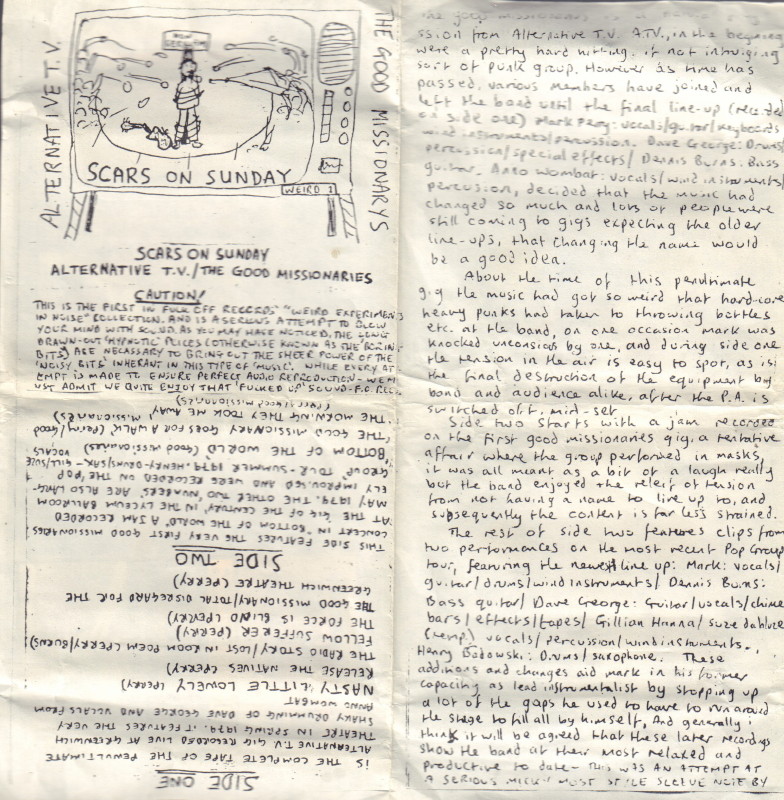 ALTERNATIVE T.V.
THE GOOD MISSIONARYS
SCARS ON SUNDAY
WEIRD 1
SCARS ON SUNDAY
ALTERNATIVE T.V./THE GOOD MISSIONARIES
CAUTION!
THIS IS THE FIRST IN FUCK OFF RECORDS' "WEIRD EXPERIMENTS
IN NOISE" COLLECTION, AND IS A SERIOUS ATTEMPT TO BLOW
YOUR MIND WITH SOUND. AS YOU MAY HAVE NOTICED, THE LONG
DRAWN-OUT 'HYPNOTIC' PIECES (OTHERWISE KNOWN AS THE BORING
BITS) ARE NECESSARY TO BRING OUT THE SHEER POWER OF THE
'NOISY BITS' INHERANT IN THIS TYPE OF 'MUSIC'. WHILE EVERY AT
EMPT IS MADE TO ENSURE PERFECT AUDIO REPRODUCTION - WE M
UST ADMIT WE QUITE ENJOY THAT 'FUCKED UP' SOUND - F.O. REC.
SIDE ONE
IS THE COMPLETE TAPE OF THE PENULTIMATE
ALTERNATIVE T.V. GIG RECORDED LIVE AT GREENWICH
THEATRE IN SPRING 1979. IT FEATURES THE VERY
SHAKY DRUMMING OF DAVE GEORGE AND VOCALS FROM
ANNO WOMBAT
NASTY LITTLE LONELY (PERRY)
RELEASE THE NATIVES (PERRY)
THE RADIO STORY/LOST IN ROOM POEM (PERRY/BURNS)
FELLOW SUFFERER (PERRY)
THE FORCE IS BLIND (PERRY)
THE GOOD MISSIONARY/TOTAL DISREGARD FOR THE
GREENWICH THEATRE (PERRY)
SIDE TWO
THIS SIDE FEATURES THE VERY FIRST GOOD MISSIONARIES
CONCERT IN "BOTTOM OF THE WORLD", A JAM RECORDED
AT THE 'GIG OF THE CENTURY', IN THE LYCEUM BALLROOM
MAY 1979. THE OTHER TWO 'NUMBERS', ARE ALSO LARG-
ELY IMPROVISED AND WERE RECORDED ON THE 'POP
GROUP' TOUR - SUMMER 1979. HENRY-DRUMS/SAX - GILL/SUZE VOCALS
BOTTOM OF THE WORLD (GOOD MISSIONARIES)
'THE GOOD MISSIONARY GOES FOR A WALK' (PERRY/GOOD MISSIONARIES)
'THE MORNING THEY TOOK ME AWAY'
(PERRY/GOOD MISSIONARIES)
the good missionaries
ssion from Alternative T.V. A.T.V., in the begining
were a pretty hard hitting, if not intruiging
sort of punk group. However as time has
passed, various members have joined and
left the band until the final line-up (recorded
on side one) Mark Perry: vocals/guitar/keyboards
wind instruments/percussion. Dave George: Drums/
percussion/special effects/ Dennis Burns: Bass
guitar. Anno Wombat: vocals/wind instruments/
percussion, decided that the music had
changed so much and lots of people were
still coming to gigs expecting the older
line-ups, that changing the name would
be a good idea.
About the time of this penultimate
gig the music had got so weird that hard-core
heavy punks had taken to throwing bottles
etc. at the band, on one occasion mark was
knocked unconsious by one, and during side one
the tension in the air is easy to spot, as is
the final destruction of the equipment by
band and audience alike, after the P.A. is
switched off, mid-set
Side two starts with a jam recorded
on the first good missionaries gig, a tentative
affair where the group performed in masks,
it was all meant as a bit of a laugh really
but the band enjoyed the relief of tension
from not having a name to live up to, and
subsequently the content is far less strained.
The rest of side two features clips from
two performances on the most recent Pop Group
tour, featuring the newest line up: Mark: vocals/
guitar/drums/wind instruments/ Dennis Burns:
Bass guitar/ Dave George: Guitar/vocals/chime
bars/effects/tapes/ Gillian Hanna/ suze dablue
(temp.) vocals/percussion/wind instruments.,
Henry Badowski: Drums/saxophone. These
additions and changes aid mark in his former
capacity as lead instrumentalist by stopping up
a lot of the gaps he used to have to run around
the stage to fill all by himself, And generally i
think it will be agreed that these later recordings
show the band at their most relaxed and
productive to date - THIS WAS AN ATTEMPT AT
A SERIOUS MICKY MOST STYLE SLEEVE NOTE BY